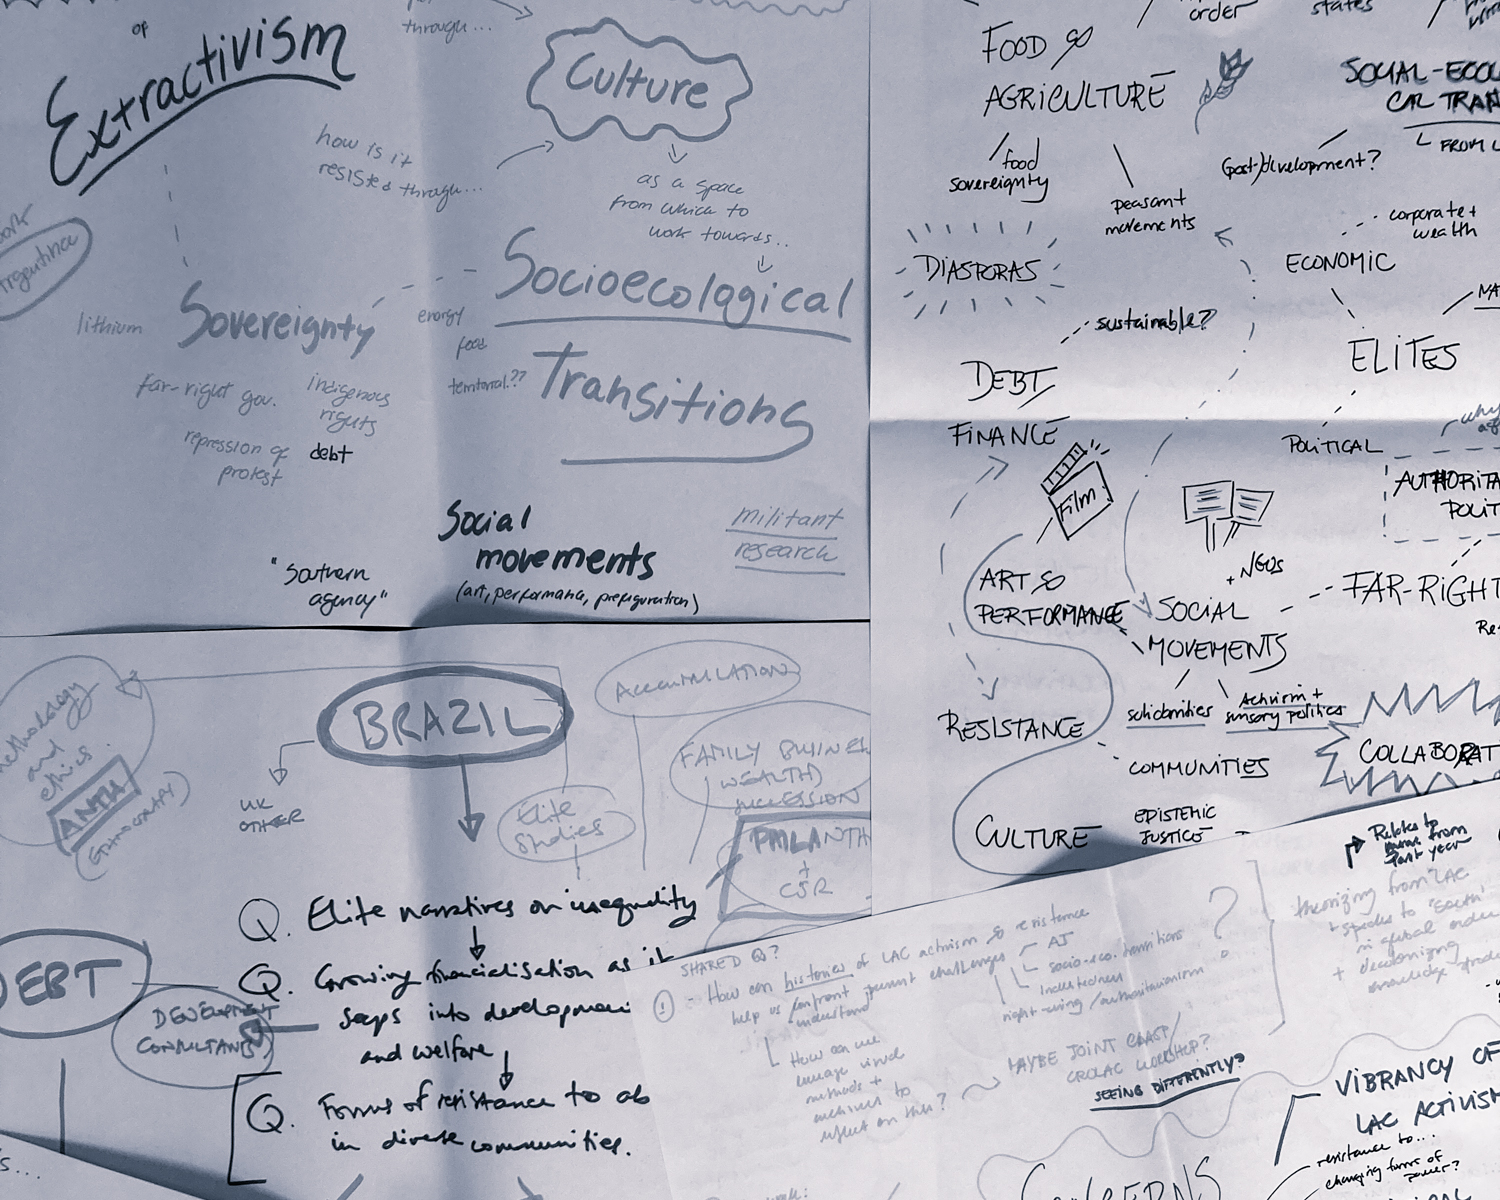 of
Extractivism
through...
Culture
how is it
resisted through...
as a space
from which to
work towards..
Argentina
Socioecological
Transitions
lithium
Sovereignty
energy
food
territorial??
far-right gov.
indigenous
rights
repression of
protest
debt
Social
movements
(art, performance, prefiguration)
militant
research
"Southern
agency"
order
states
FOOD &
AGRICULTURE
SOCIAL-ECOLO
CAL TRAN
FROM
food
sovereignty
peasant
movements
Post-/development?
corporate +
wealth
DIASPORAS
ECONOMIC
sustainable?
ELITES
DEBT
FINANCE
POLITICAL
AUTHORITA
POLIT
Film
+ NGOS
ART &
PERFORMANCE
SOCIAL
MOVEMENTS
FAR-RIGHT
Re
solidarities
Activism +
sensory politics
RESISTANCE
COMMUNITIES
COLLABORAT
CULTURE
EPISTEMIC
JUSTICE
methodology
and
ethics.
ANTH
(ETHNOGRAPHY)
BRAZIL
ACCUMULATION
FAMILY BUSINE
WEALTH
SUCCESSION
UK
OTHER
Elite
Studies
PHILANTH
+
CSR
Q. Elite narratives on inequality
Q. Growing financialisation as it
seeps into developmen
and welfare
Q. Forms of resistance to
in diverse communities.
DEBT
DEVELOPMENT
CONSULTANTS
SHARED Q?
① How can histories of LAC activism & resistance
help us confront present challenges
understand
AJ
socio-eco. transitions
Indebtedness
right-wing / authoritarianism
?
How can we
engage visual
methods +
archives to
reflect on this?
MAYBE JOINT CLAST/
CROLAC WORKSHOP?
SEEING DIFFERENTLY?
Relates to
from
Past year
theorizing from LAC
speaks to 'South'
in global order
+ decolonizing
knowledge
VIBRANCY OF
LAC ACTIVISM
resistance to...
changing forms of
power?
CONCERNS